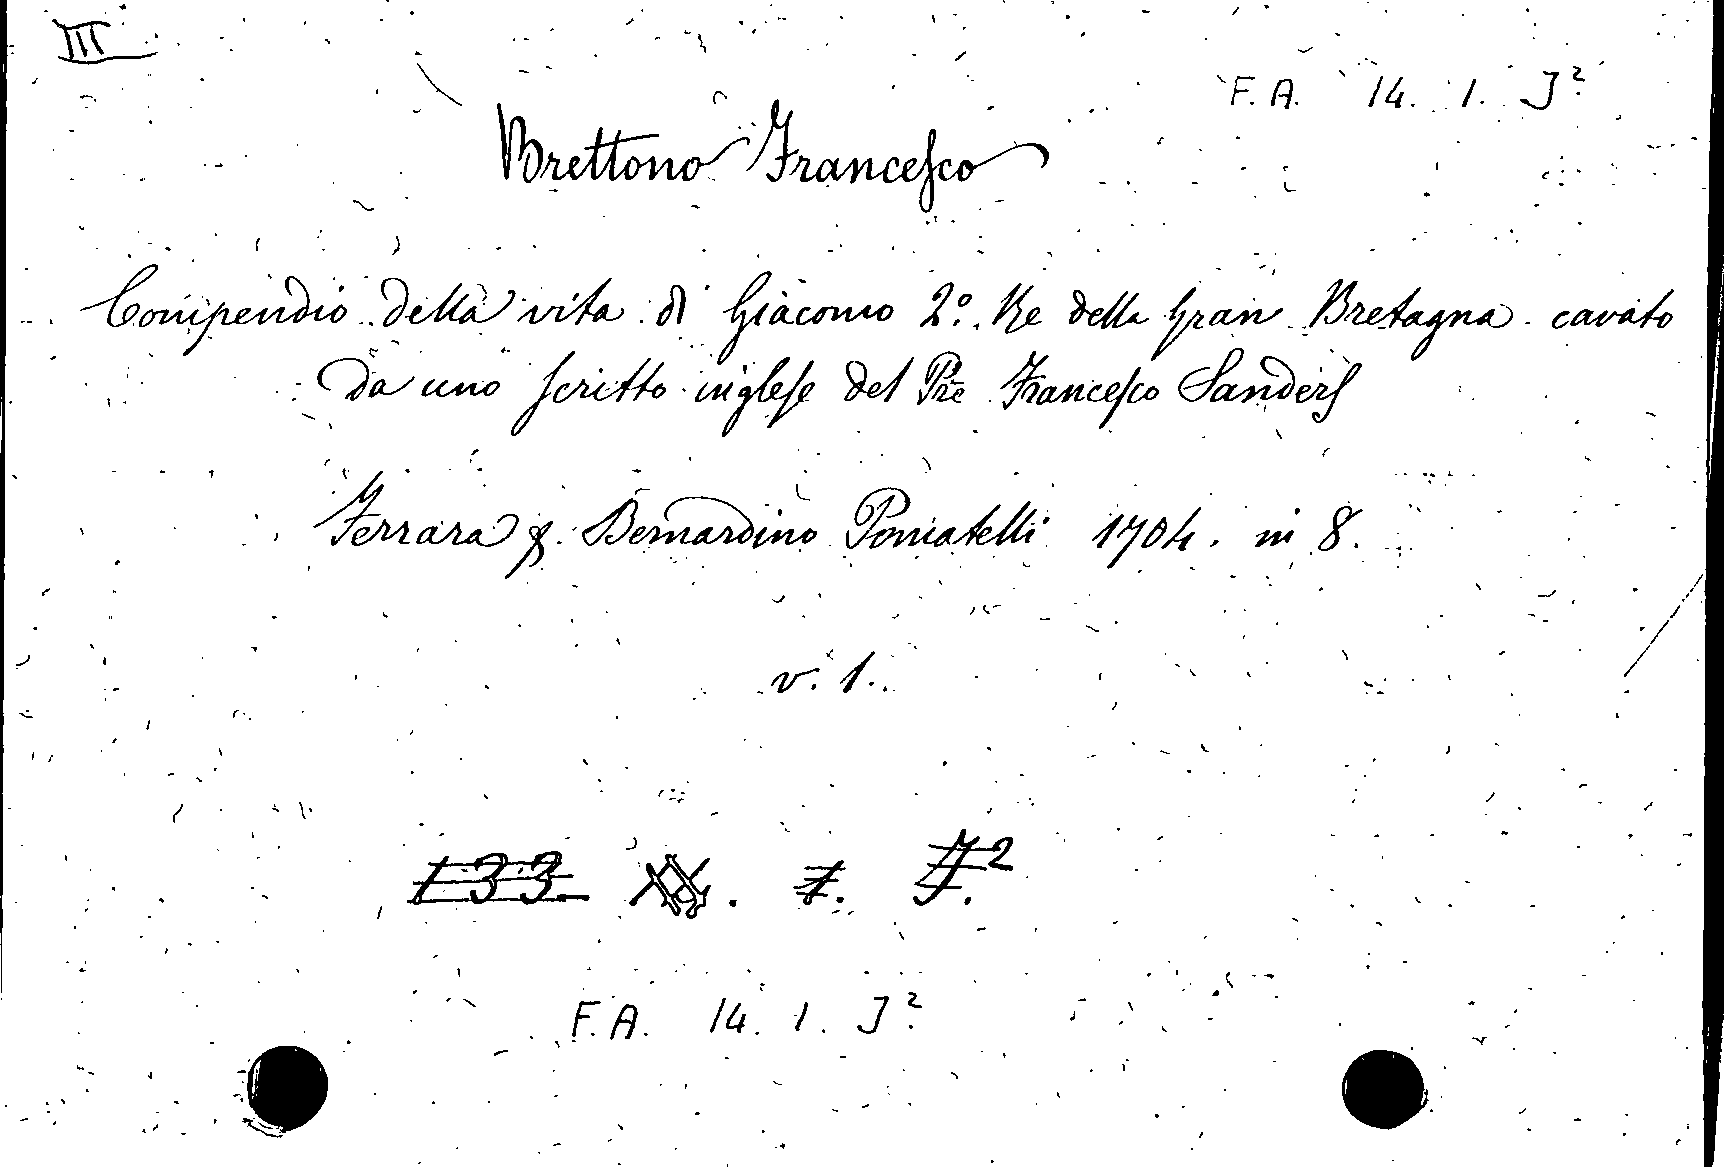 III
F. A. 14. 1. J².
Brettono Francesco
Compendio della vita di Giacomo 2º. Re della Gran Bretagna cavato
da uno scritto inglese del Pre Francesco Sanders
Ferrara p. Bernardino Pomatelli 1704. in 8.
v. 1.
133. 1. J.²
F. A. 14. 1. J².